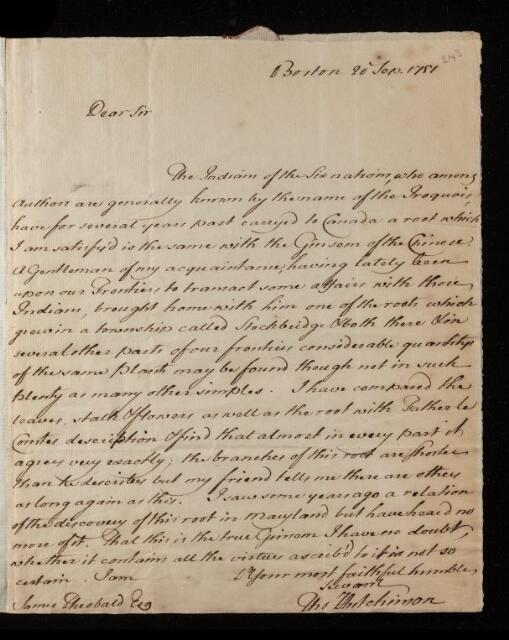 243
Boston 20 Sep. 1751
Dear Sir
The Indians of the Six nations, who among
Authors are generally known by the name of the Iroquois,
have for several years past carryed to Canada a root which
I am satisfy'd is the same with the Ginsom of the Chinese.
A Gentleman of my acquaintance, having lately been
upon our Frontiers to transact some affairs with those
Indians, brought home with him one of the roots which
grew in a township called Stockbridge & both there & in
several other parts of our frontiers considerable quantitys
of the same plant may be found though not in such
plenty as many other simples. I have compared the
leaves, stalk & flowers as well as the root with Father le
Comtes description & find that almost in every part it
agrees very exactly; the branches of this root are shorter
than he describes but my friend tells me there are others
as long again as this. I saw some years ago a relation
of the discovery of this root in Maryland but have heard no
more of it. That this is the true Ginsom I have no doubt,
whether it contains all the virtues ascrib'd to it is not so
certain. I am
Sr Your most faithful humble
Servant
Tho Hutchinson
James Theobald Esq